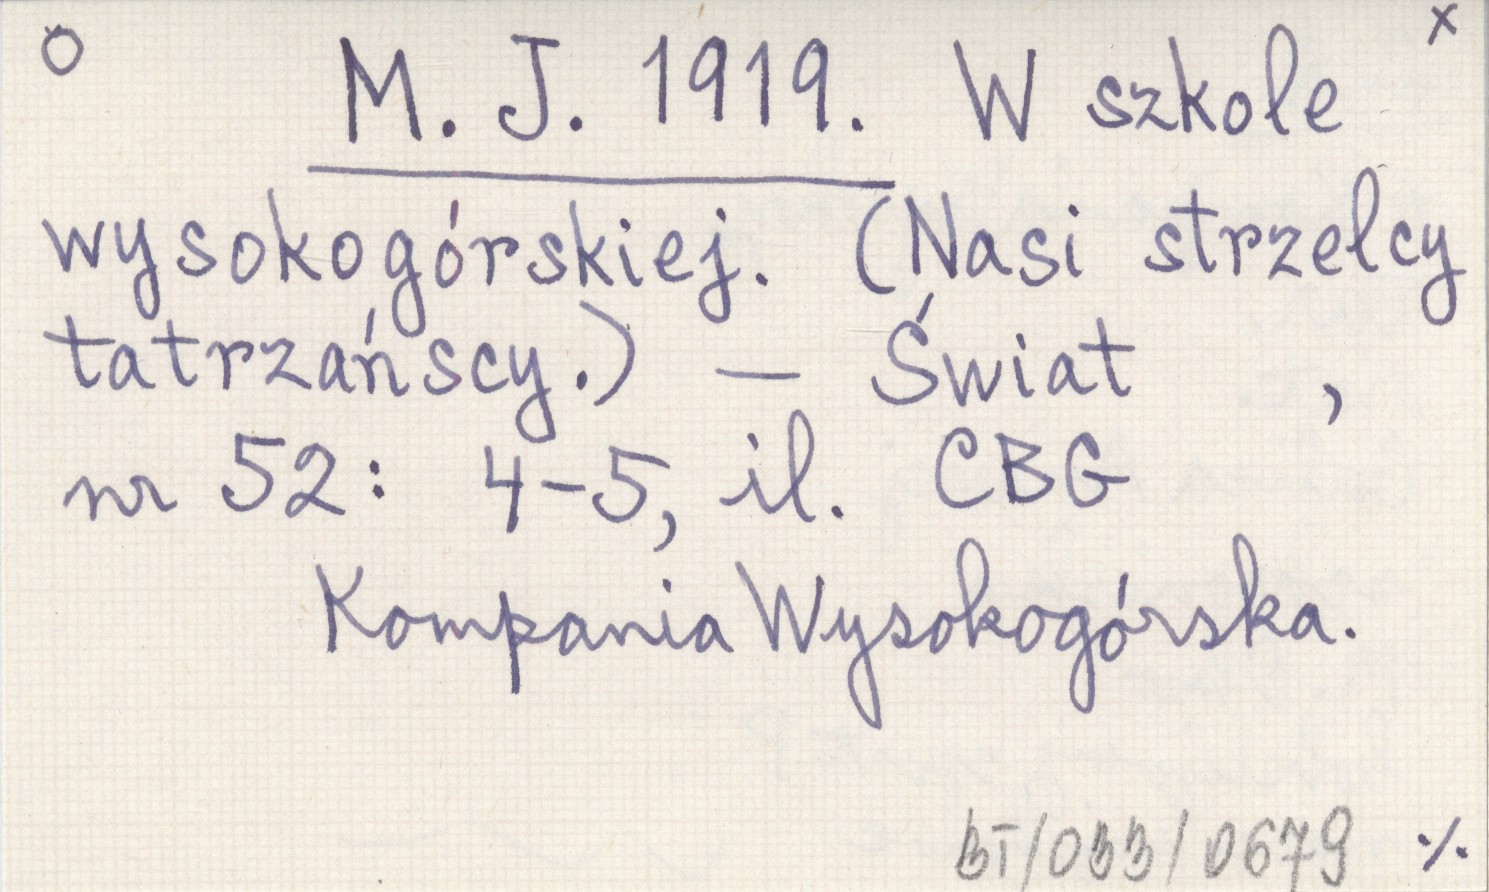 O M. J. 1919. W szkole x
wysokogórskiej. (Nasi strzelcy
tatrzańscy.) — Świat ,
nr 52: 4-5, il. CBG
Kompania Wysokogórska.
BT/033/0679 ·/.